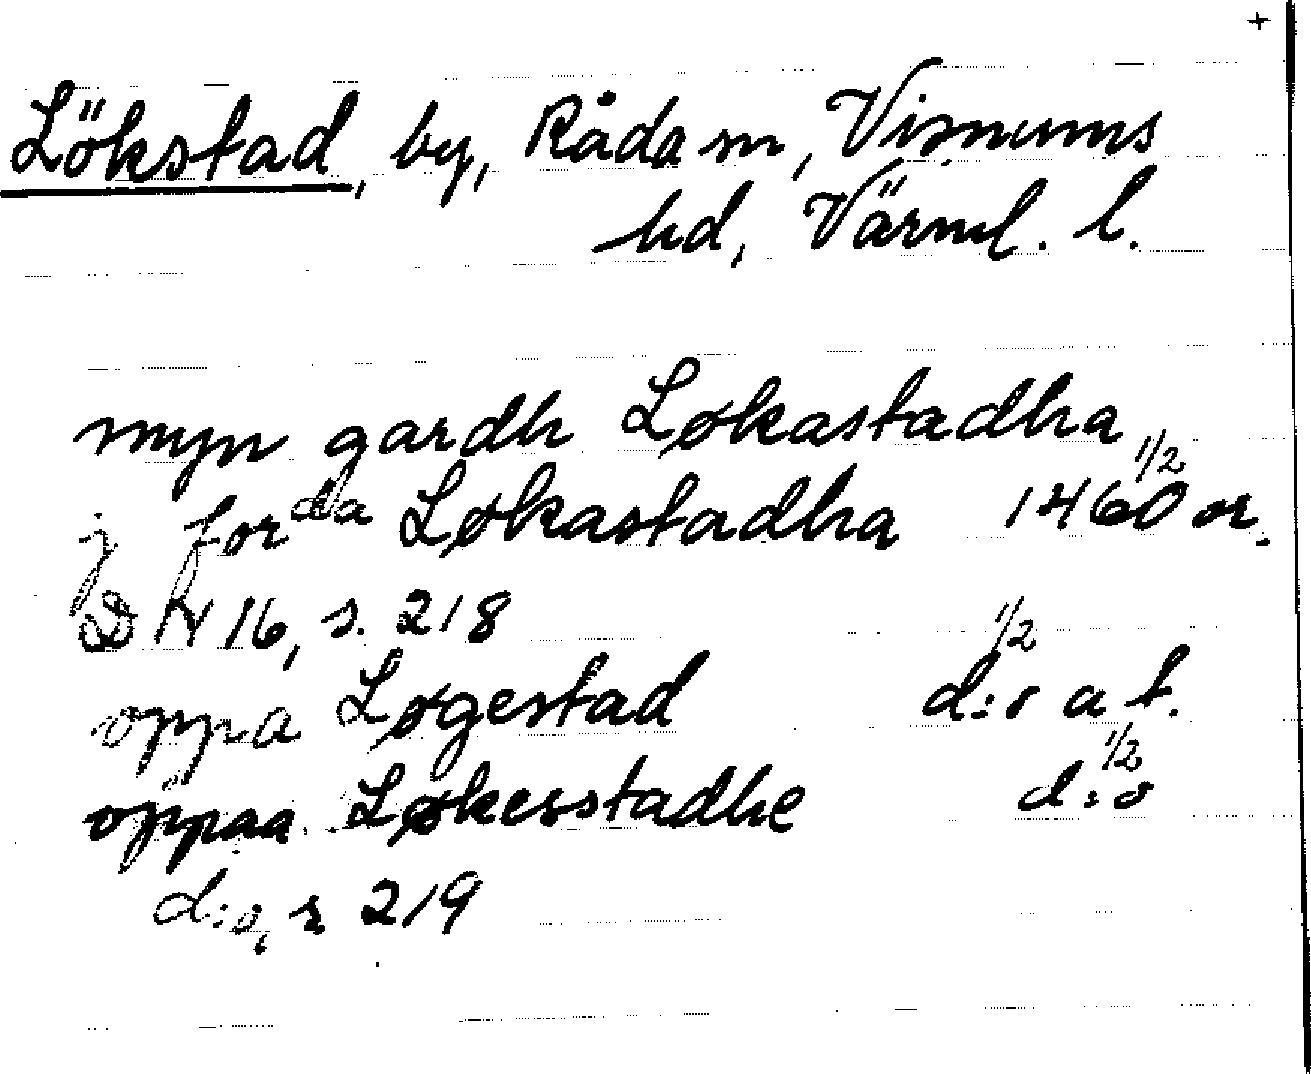 +
Lökstad, by, Råda sn, Visnums
hd, Värml. l.
myn gardh Løkastadha
j for^da Løkastadha 1460 1/2 or.
DN 16, s. 218
oppa Løgestad d:o 1/2 a t.
oppaa Løkesstadhe d:o 1/2
d:o, s 219